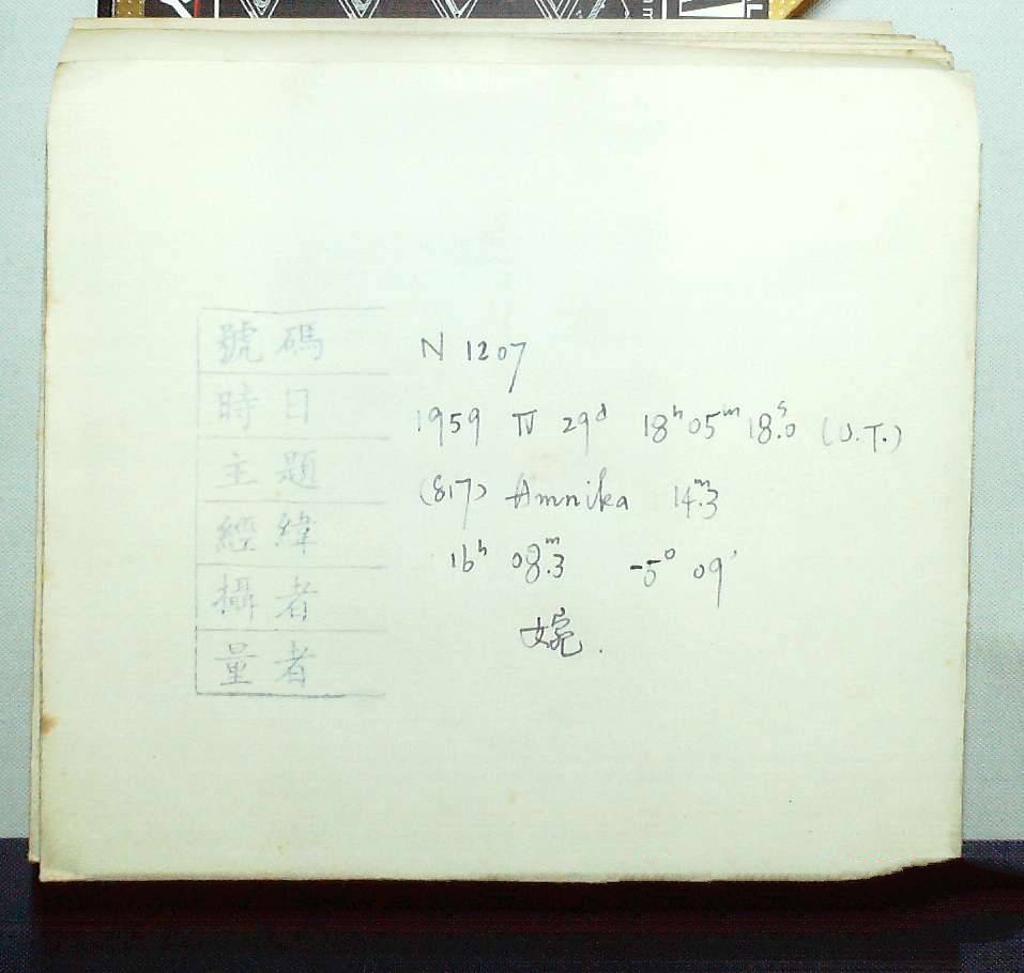 號碼 N 1207
時日 1959 IV 29d 18h05m18s.0 (U.T.)
主題 (817) Amnika 14m.3
經緯 16h 08m.3 -5° 09'
攝者 婉.
量者